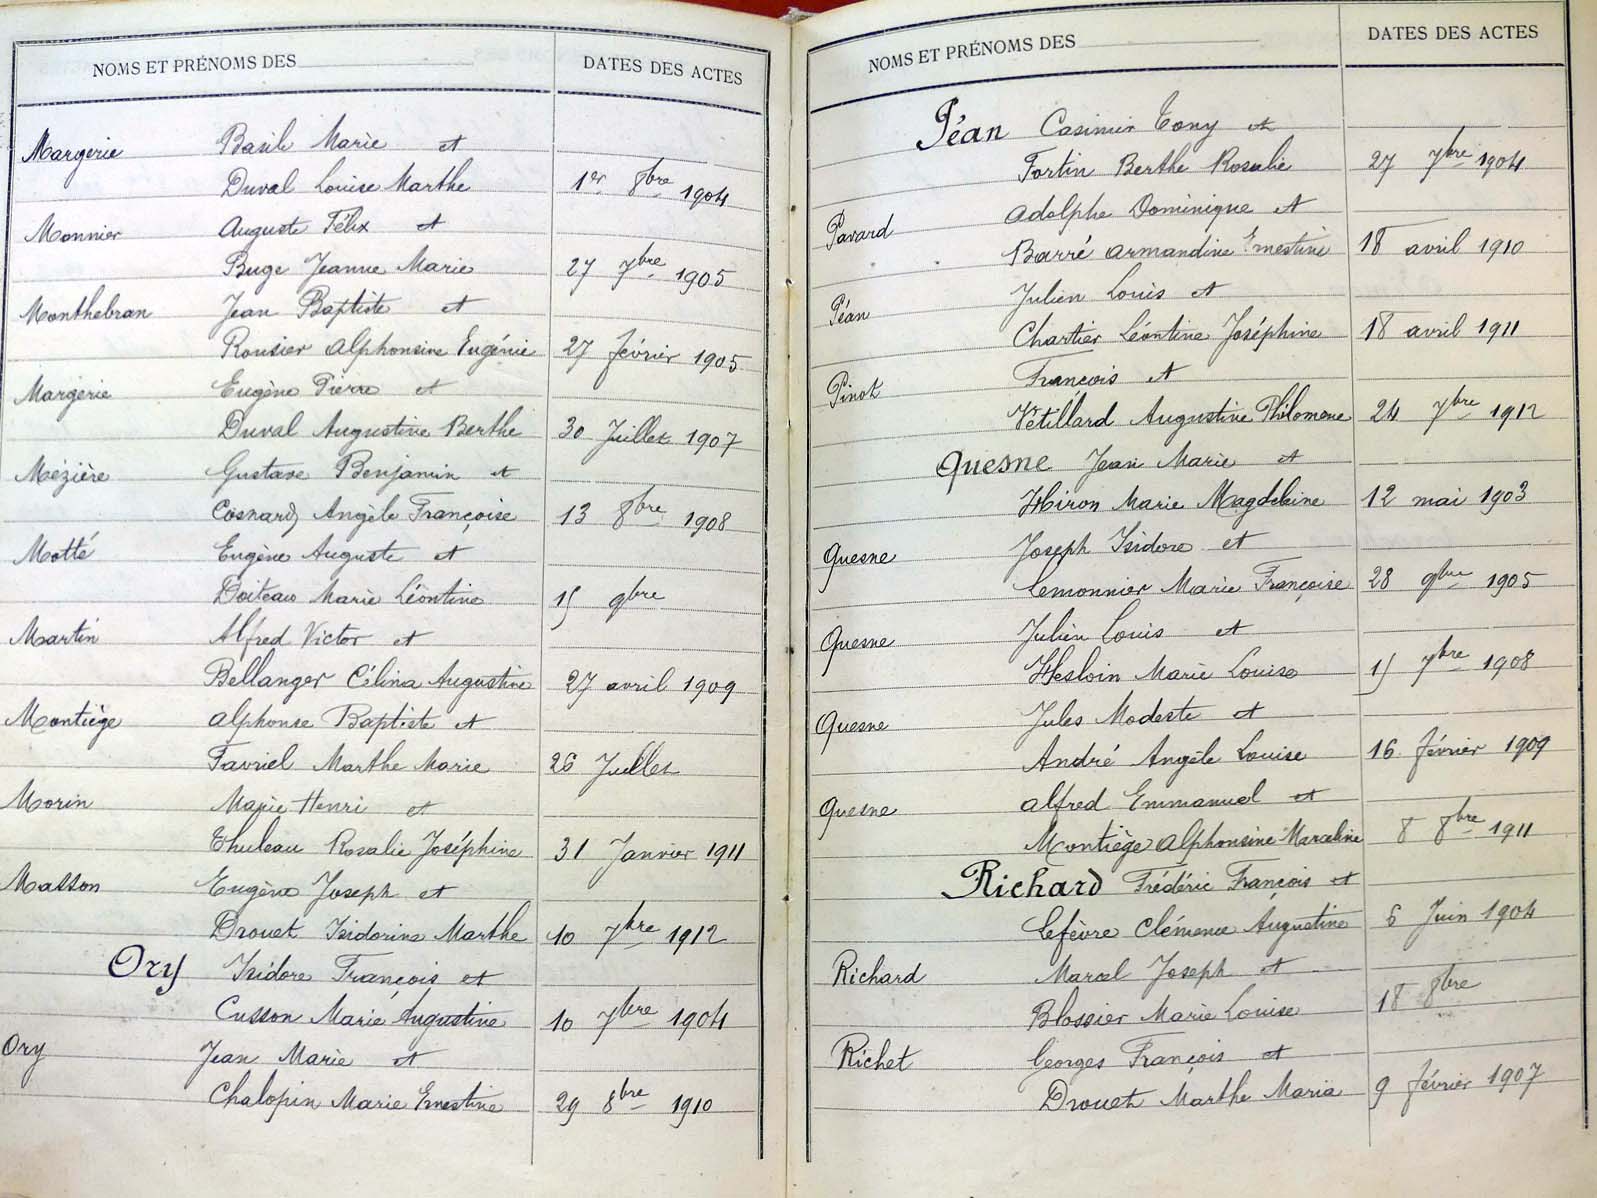 NOMS ET PRÉNOMS DES
DATES DES ACTES
Margerie Basile Marie et
Duval Louise Marthe 1er 8bre 1904
Monnier Auguste Félix et
Buge Jeanne Marie 27 7bre 1905
Monthebran Jean Baptiste et
Rousier Alphonsine Eugénie 27 février 1905
Margerie Eugène Pierre et
Duval Augustine Berthe 30 Juillet 1907
Mézière Gustave Benjamin et
Cosnard Angèle Françoise 13 8bre 1908
Motté Eugène Auguste et
Doiteau Marie Léontine 15 9bre
Martin Alfred Victor et
Bellanger Célina Augustine 27 avril 1909
Montiège Alphonse Baptiste et
Favriel Marthe Marie 26 Juillet
Morin Marie Henri et
Thuleau Rosalie Joséphine 31 Janvier 1911
Masson Eugène Joseph et
Drouet Isidorine Marthe 10 7bre 1912
Ory Isidore François et
Cusson Marie Augustine 10 7bre 1904
Ory Jean Marie et
Chalopin Marie Ernestine 29 8bre 1910
NOMS ET PRÉNOMS DES
DATES DES ACTES
Péan Casimir Tony et
Fortin Berthe Rosalie 27 7bre 1904
Pavard Adolphe Dominique et
Barré Armandine Ernestine 18 avril 1910
Péan Julien Louis et
Chartier Léontine Joséphine 18 avril 1911
Pinot François et
Vétillard Augustine Philomene 24 7bre 1912
Quesne Jean Marie et
Hiron Marie Magdeleine 12 mai 1903
Quesne Joseph Isidore et
Lemonnier Marie Françoise 28 9bre 1905
Quesne Julien Louis et
Hesloin Marie Louise 15 7bre 1908
Quesne Jules Modeste et
André Angèle Louise 16 février 1909
Quesne Alfred Emmanuel et
Montiège Alphonsine Marceline 8 8bre 1911
Richard Frédéric François et
Lefèvre Clémence Augustine 6 Juin 1904
Richard Marcel Joseph et
Blossier Marie Louise 18 8bre
Richet Georges François et
Drouet Marthe Maria 9 février 1907